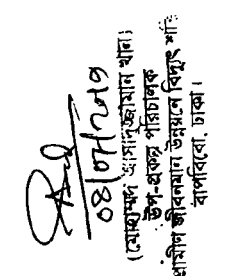 ০৪/০৭/২০১৭
(মোহাম্মদ আসাদুজ্জামান খান)
উপ-প্রকল্প পরিচালক
গ্রামীণ জীবনমান উন্নয়নে বিদ্যুৎ শক্তি
বাপবিবো, ঢাকা।